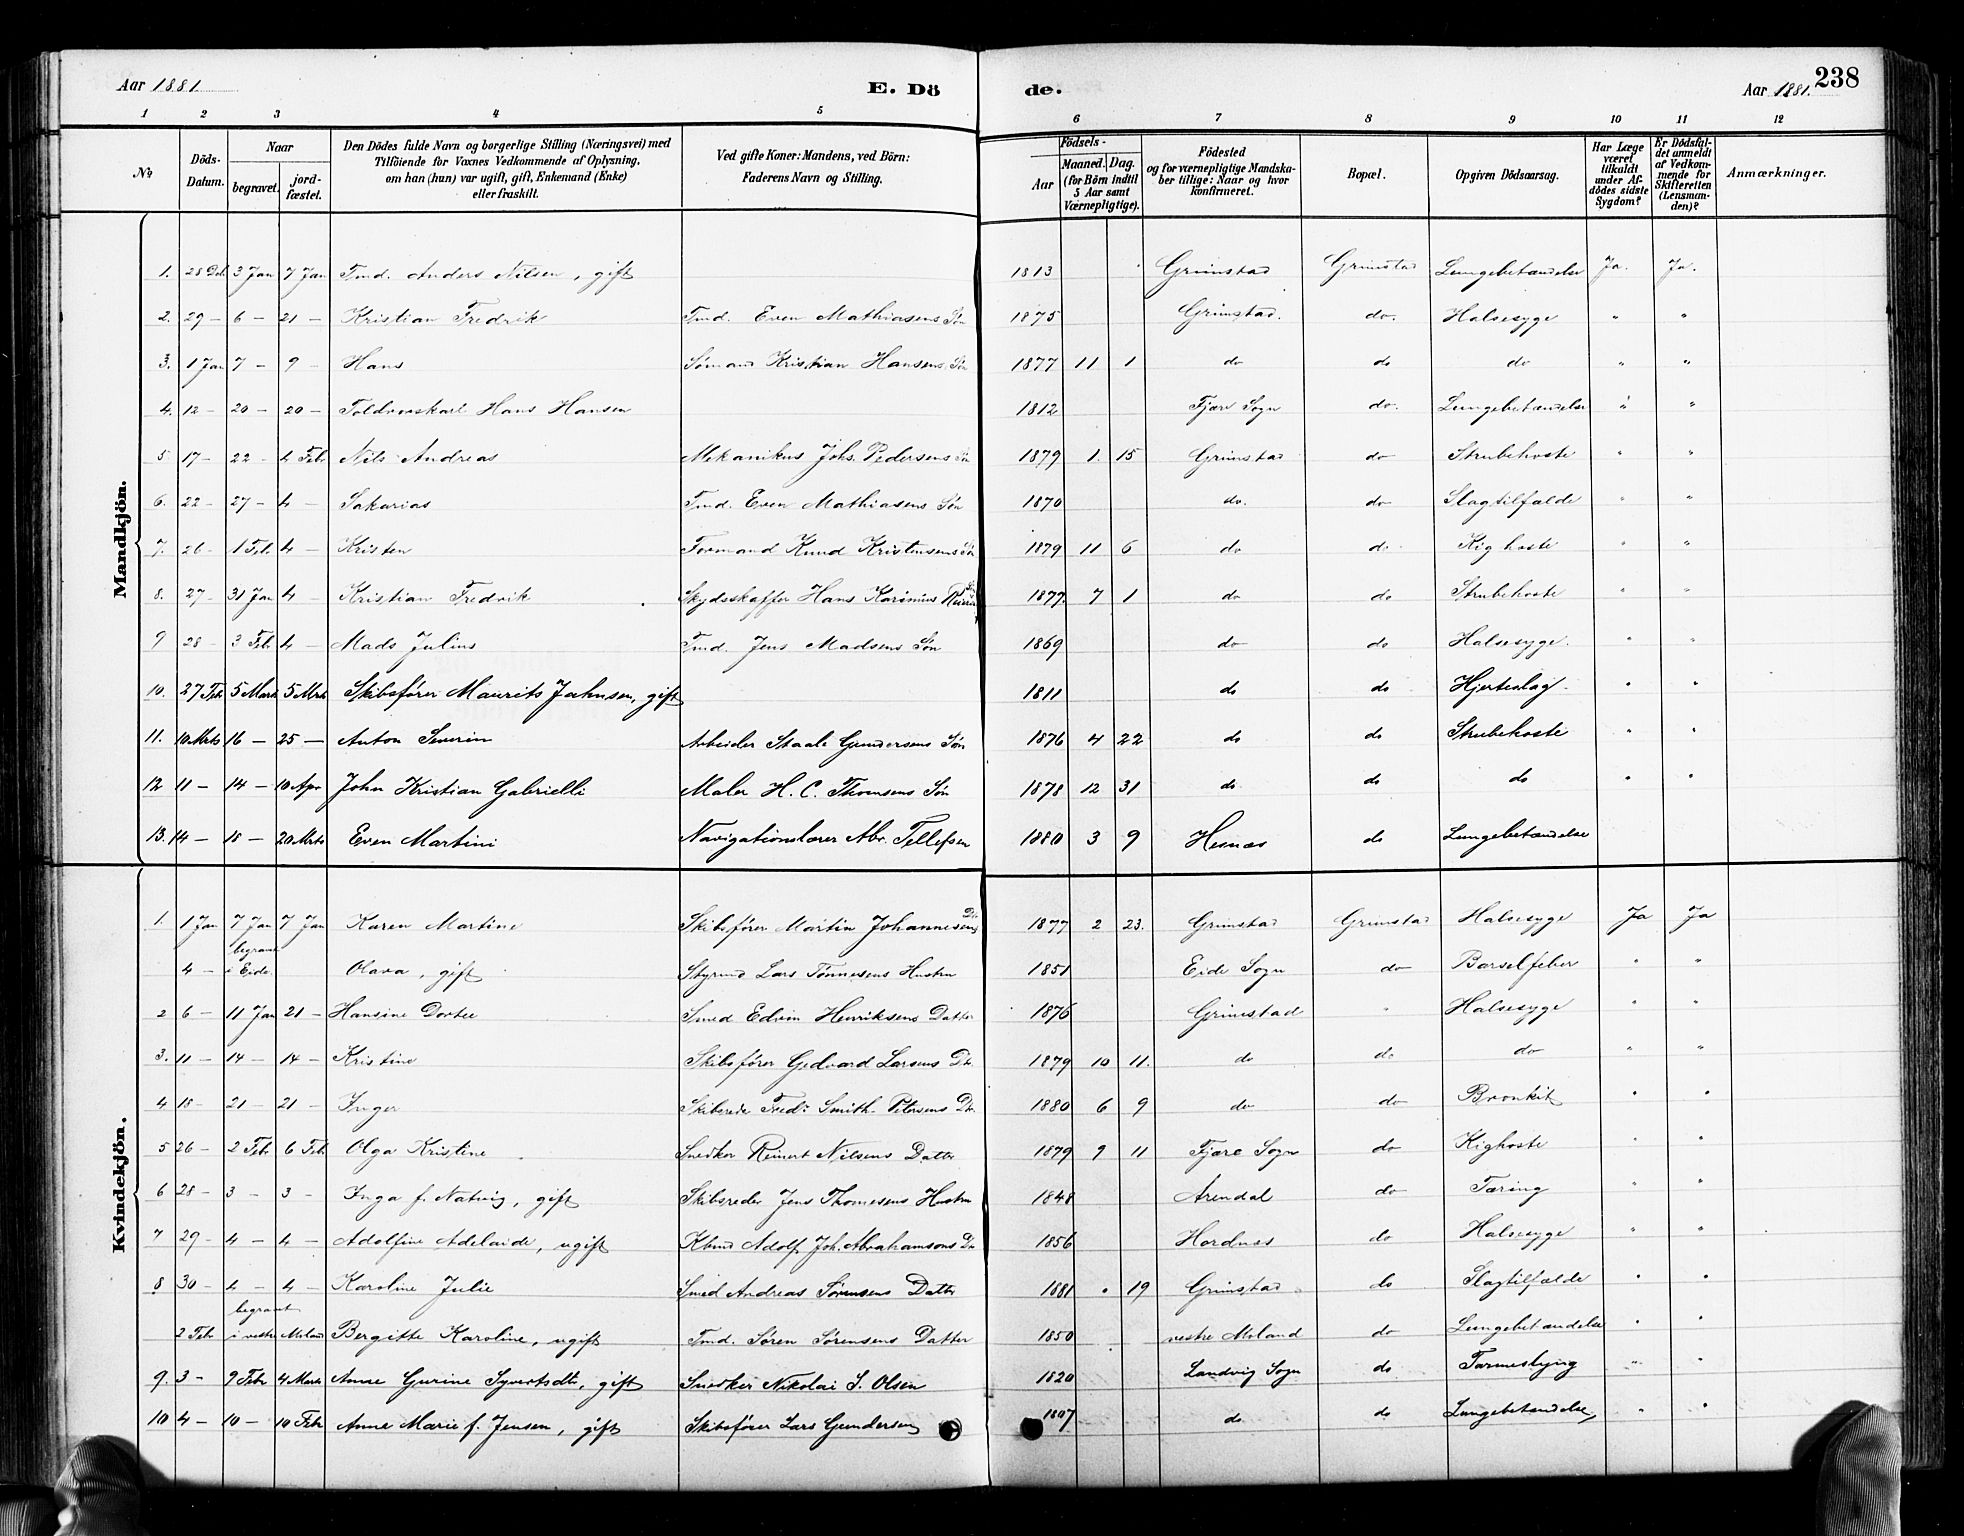 Aar 1881. E. Dö de. Aar 1881. 238
1 2 3 4 5 6 7 8 9 10 11 12
No Döds-Datum. Naar begravet. jordfæstet. Den Dödes fulde Navn og borgerlige Stilling (Næringsvei) med Tilföiende for Voxnes Vedkommende af Oplysning, om han (hun) var ugift, gift, Enkemand (Enke) eller fraskilt. Ved gifte Koner: Mandens, ved Börn: Faderens Navn og Stilling. Födsels- Aar Maaned. Dag. (for Börn indtil 5 Aar samt Værnepligtige). Födested og for værnepligtige Mandskaber tillige: Naar og hvor konfirmeret. Bopæl. Opgiven Dödsaarsag. Har Læge været tilkaldt under Afdödes sidste Sygdom? Er Dödsfaldet anmeldt af Vedkommende for Skifteretten (Lensmanden)? Anmærkninger.
Mandkjön.
1. 28 Dcb 3 Jan 7 Jan Tmd. Anders Nilsen, gift 1813 Grimstad Grimstad Lungebetændelse Ja. Ja.
2. 29 – 6 – 21 – Kristian Fredrik Tmd. Even Mathiasens Søn 1875 Grimstad. do. Halsesyge " "
3. 1 Jan 7 – 9 – Hans Sømand Kristian Hansens Søn 1877 11 1 do do do " "
4. 12 – 20 – 20 – Hans Hansen 1812 Fjære Sogn do. Lungebetændelse " "
5. 17 – 22 – 4 Feb Nils Andreas Mekanikus Johs. Pedersens Søn 1879 1. 15 Grimstad do Strubehoste " "
6. 22 – 27 – 4 – Sakarias Tmd. Even Mathiasens Søn 1870 do. do Slagtilfælde " "
7. 26 – 1 Feb 4 – Kristen Formand Knud Kristensens Søn 1879 11 6 do do Kighoste " "
8. 27 – 31 Jan 4 – Kristian Fredrik Skydsskaffer Hans Karinius 1877. 7 1 do do Strubehoste " "
9 28 – 3 Feb 4 – Mads Julius Tmd. Jens Madsens Søn 1869 do do Halsesyge. " "
10. 27 Feb 5 Marts 5 Mrts Skibsfører Maurits Jahnsen, gift 1811 do do Hjerteslag " "
11. 10 Mrts 16 – 25 – Anton Severin Arbeider Staale Gundersens Søn 1876 4 22 do do Strubehoste " "
12 11 – 14 – 10 Apr John Kristian Gabrielli Maler H. C. Thorensens Søn 1878 12 31 do do do " "
13. 14 – 18 – 20 Mrts Even Martini Navigationslærer Abr. Tellefsen 1880 3 9 Hesnæs do Lungebetændelse
Kvindekjön.
1. 1 Jan 7 Jan 7 Jan Karen Martine Skibsfører Martin Johannesens Dtr 1877 2 23. Grimstad Grimstad Halsesyge Ja Ja
4 – begravet i Eide. Olava, gift Styrmd Lars Tønnesens Hustru 1851 Eide Sogn do Barselfeber " "
2 6 – 11 Jan 21 – Hansine Dortee Smed Edvin Henriksens Datter 1876 Grimstad " Halsesyge " "
3. 11 – 14 – 14 – Kristine Skibsfører Gedvard Larsens Dtr 1879 10 11. do do do " "
4 18 – 21 – 21 – Inger Skibsrede Fred: Smith-Petersens Dtr 1880 6 9 do do Bronkit " "
5 26 – 2 Feb 6 Feb Olga Kristine Snedker Reinert Nilsens Datter 1879 9 11 Fjære Sogn do Kighoste " "
6 28 – 3 – 3 – Inga f. Natvig, gift Skibsreder Jens Thomesens Hustru 1848 Arendal do Tæring " "
7 29 – 4 – 4 – Adolfine Adelaide, ugift Kbmd Adolf Joh. Abrahamsons Dtr 1856 Hordnæs do Halsesyge " "
8 30 – 4 – 4 – Karoline Julie Smed Andreas Sørensens Datter 1881 " 19 Grimstad do Slagtilfælde " "
2 Febr begravet i vestre Moland Bergitte Karoline, ugift Tmd. Søren Sørensens Datter 1850 vestre Moland do Lungebetændelse " "
9. 3 – 9 Febr 4 Marts Anne Gurine Syvertsdtr, gift Snedker Nikolai S. Olsen 1820 Landvig Sogn do Tarmeslyng " "
10 4 – 10 – 10 Febr Anne Marie f. Jensen, gift Skibsfører Lars Gundersen 1807 do do Lungebetændelse " "